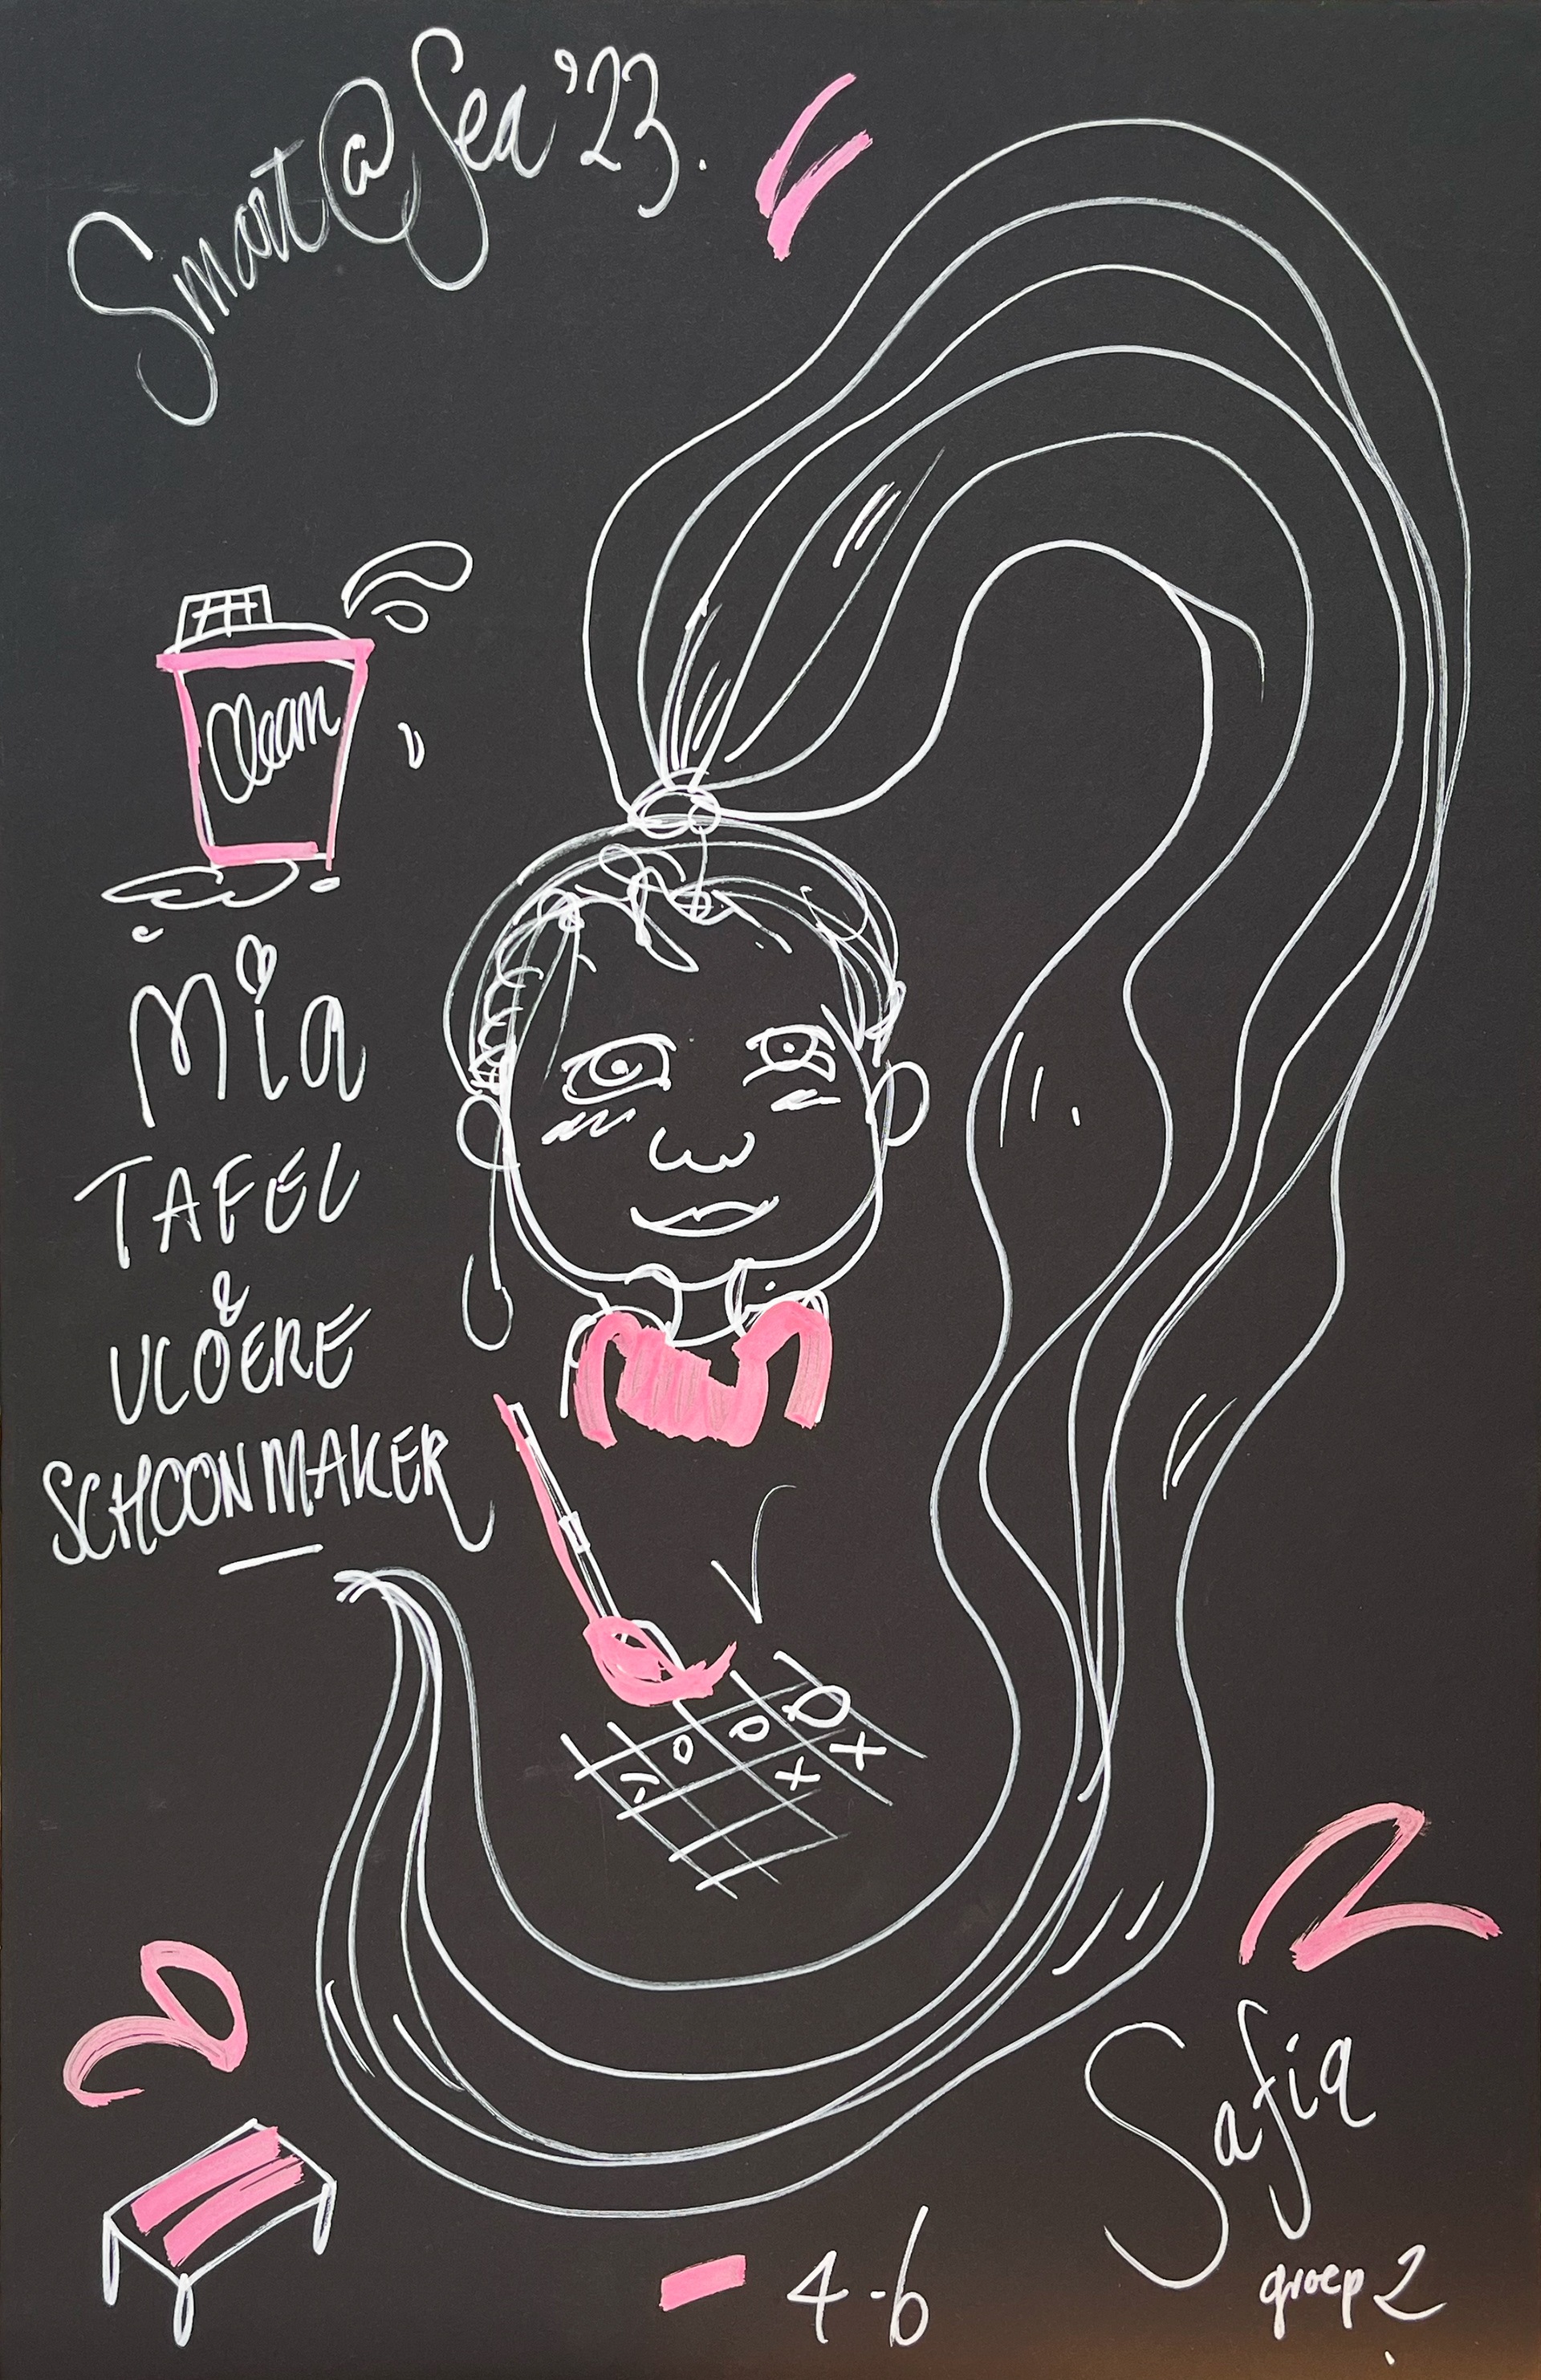 Smart @ Sea '23.
Clean
Mia
TAFEL
&
VLOERE
SCHOONMAKER
Safia
groep 2
4-6